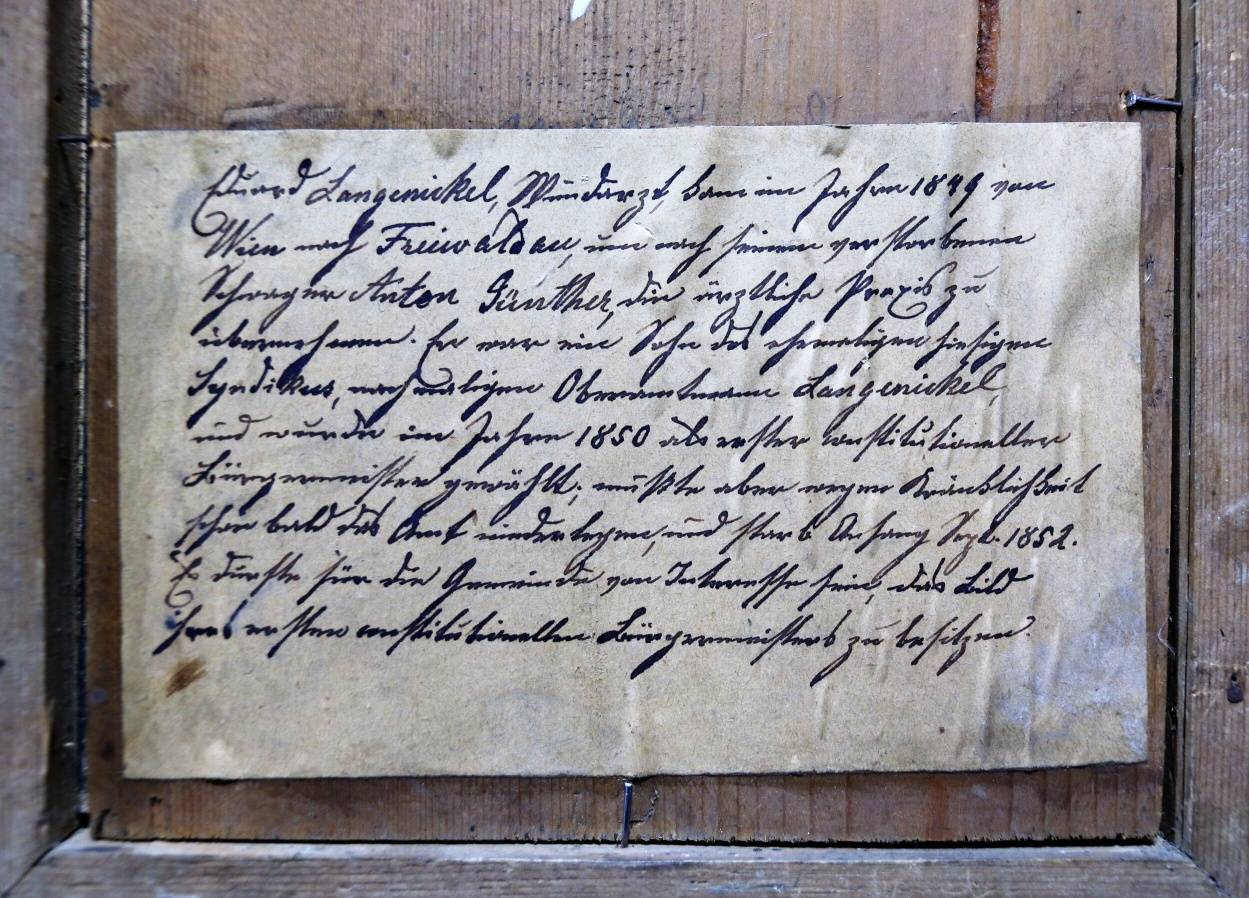 Eduard Langenickel, Wundarzt, kam im Jahre 1849 von
Wien nach Freiwaldau, um nach seinem verstorbenen
Schwager Anton Günther, die ärztliche Praxis zu
übernehmen. Er war ein Sohn des ehemaligen hiesigen
Syndikus, nachmaligen Oberamtmann Langenickel,
und wurde im Jahre 1850 als erster constitutioneller
Bürgermeister gewählt; mußte aber wegen Kränklichkeit
schon bald das Amt niederlegen, und starb Anfang Sept. 1852.
Es dürfte für die Gemeinde von Interesse sein, das Bild
ihres ersten constitutionellen Bürgermeisters zu besitzen.